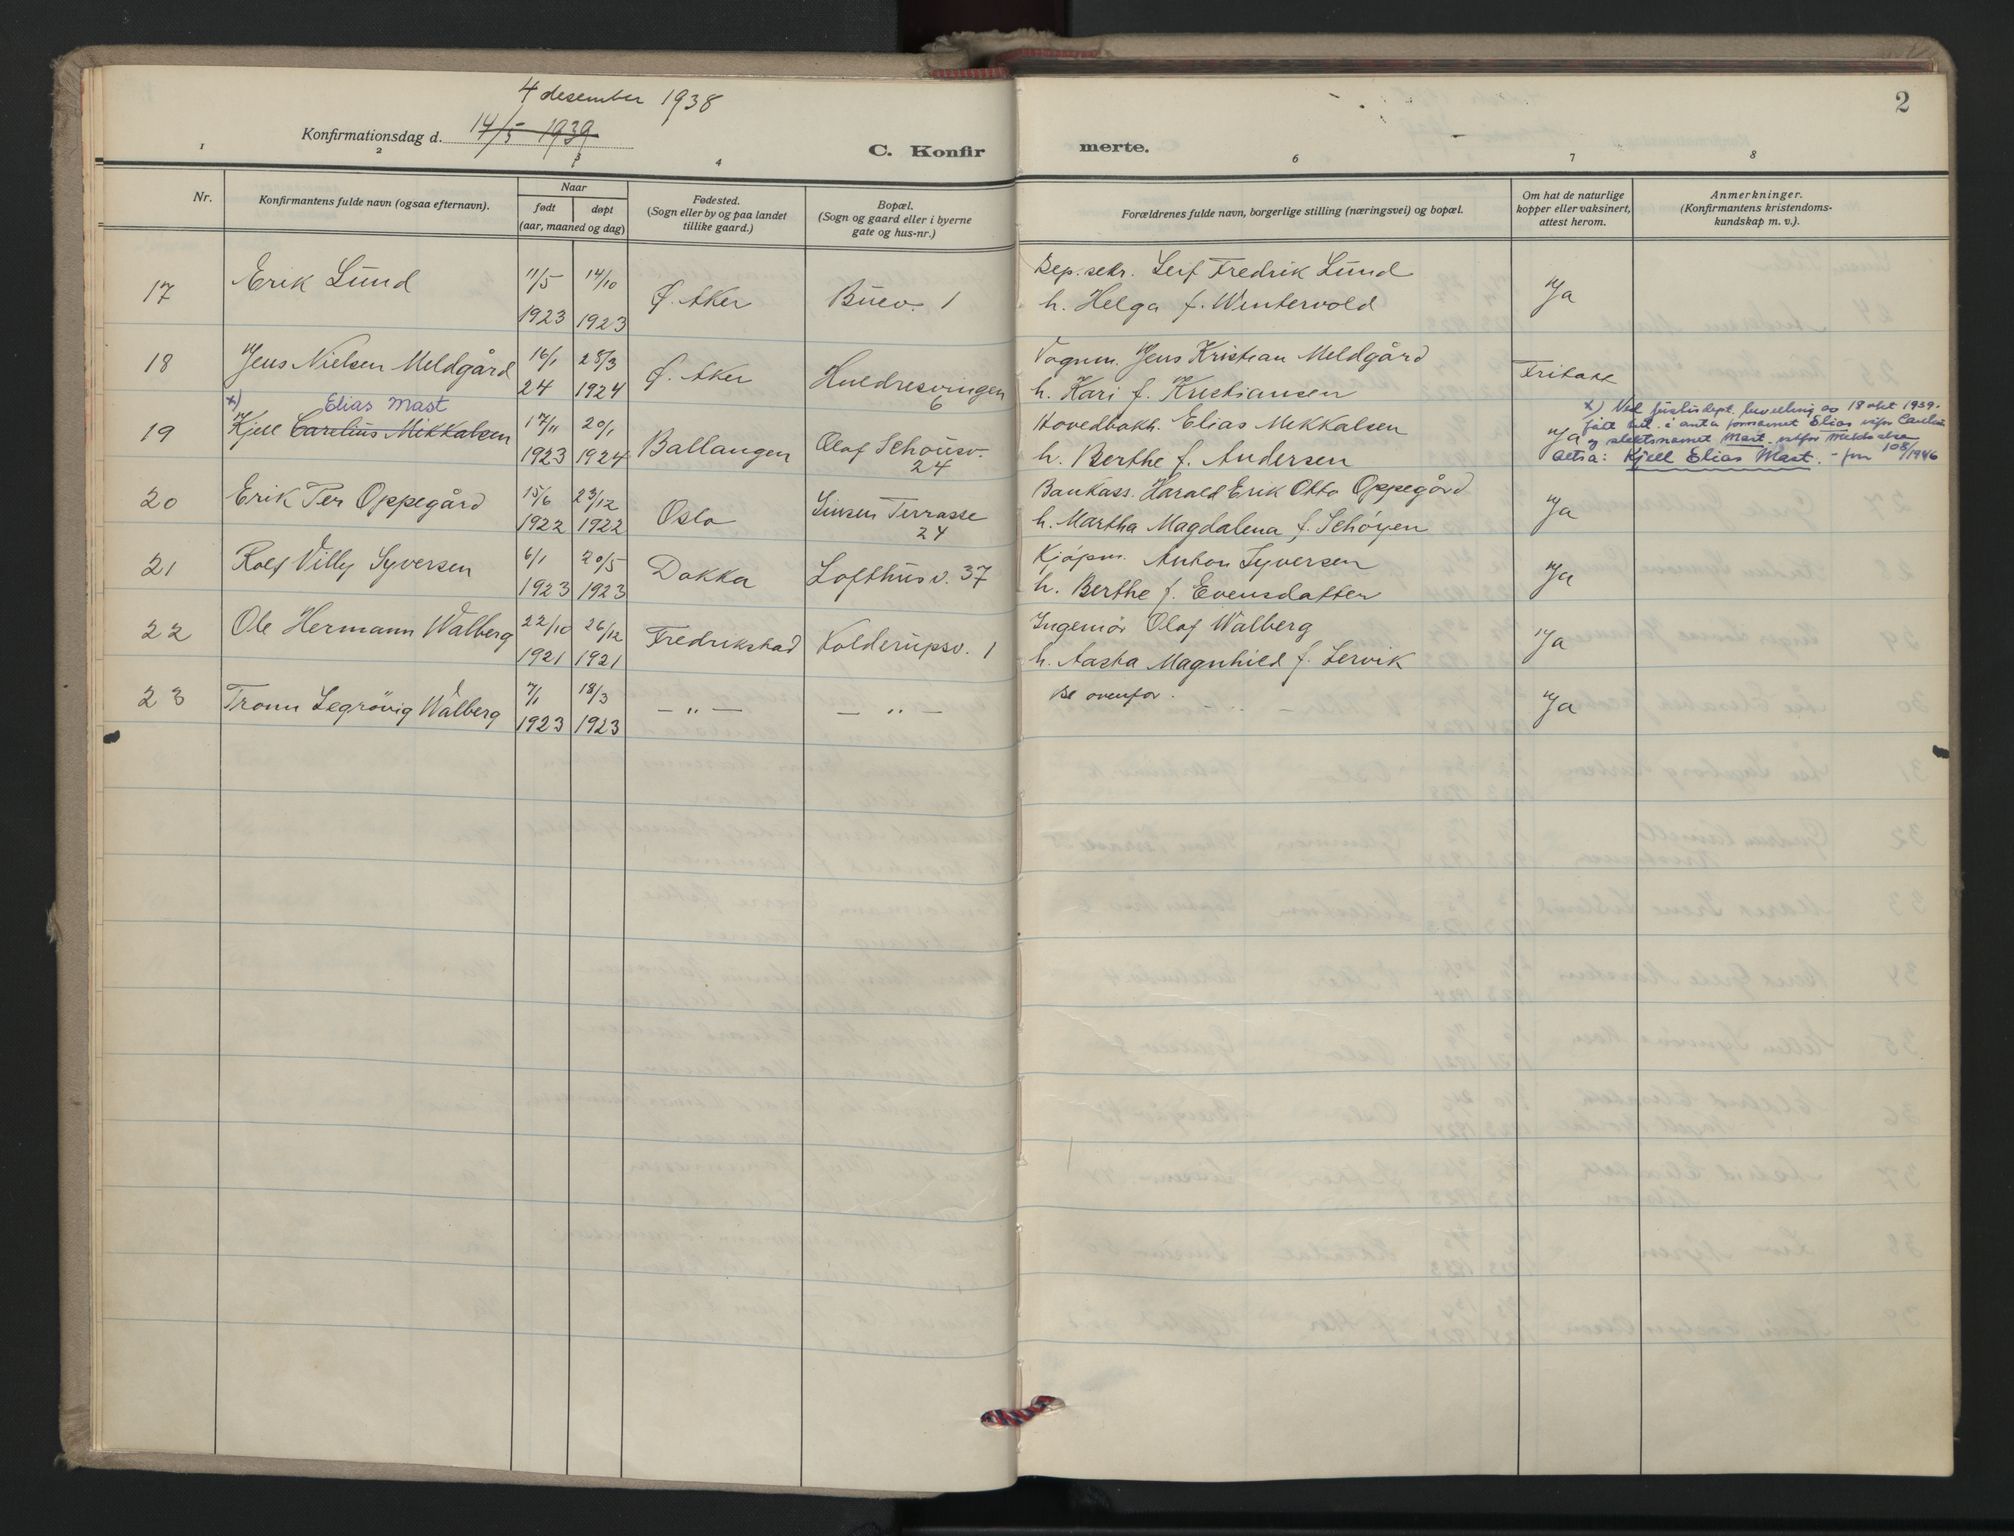 4 desember 1938
Konfirmationsdag d. 14/5 1939
C. Konfirmerte.
2
1 2 3 4 6 7 8
Nr.
Konfirmantens fulde navn (ogsaa efternavn).
Naar
født
døpt
(aar, maaned og dag)
Fødested.
(Sogn eller by og paa landet
tillike gaard.)
Bopæl.
(Sogn og gaard eller i byerne
gate og hus-nr.)
Forældrenes fulde navn, borgerlige stilling (næringsvei) og bopæl.
Om hat de naturlige
kopper eller vaksinert,
attest herom.
Anmerkninger.
(Konfirmantens kristendoms-
kundskap m. v.).
17 Erik Lund 11/5 1923 14/10 1923 Ø. Aker Buev. 1
Dep. sekr. Leif Fredrik Lund
h. Helga f. Wintervold
Ja
18 Jens Nielsen Meldgård 16/1 24 28/3 1924 Ø. Aker Huldresvingen 6
Vognm. Jens Kristian Meldgård
h. Kari f. Kristiansen
Fritatt
x) Elias Mast
19 Kjell Carelius Mikkalsen 17/11 1923 20/1 1924 Ballangen Olaf Schousv. 24
Hovedbokh. Elias Mikkalsen
h. Berthe f. Andersen
Ja
x) Ved justisdept. bevilling av 18 okt 1939.
fått till. i anta fornavnet Elias istfor
og slektsnavnet Mast istfor Mikkalsen
altså: Kjell Elias Mast. - jnr 108/1946
20 Erik Per Oppegård 15/6 1922 23/12 1922 Oslo Sinsen Terrasse 24
Bankass. Harald Erik Otto Oppegård
h. Martha Magdalena f. Schøyen
Ja
21 Rolf Villy Syversen 6/1 1923 20/5 1923 Dokka Lofthusv. 37
Kjøpm. Anton Syversen
h. Berthe f. Evensdatter
Ja
22 Ole Hermann Walberg 22/10 1921 26/12 1921 Fredrikstad Kolderupsv. 1
Ingeniør Olaf Walberg
h. Aasta Magnhild f. Lervik
Ja
23 Tronn Legrövig Walberg 7/1 1923 18/3 1923 — " — — " —
Se ovenfor.
Ja